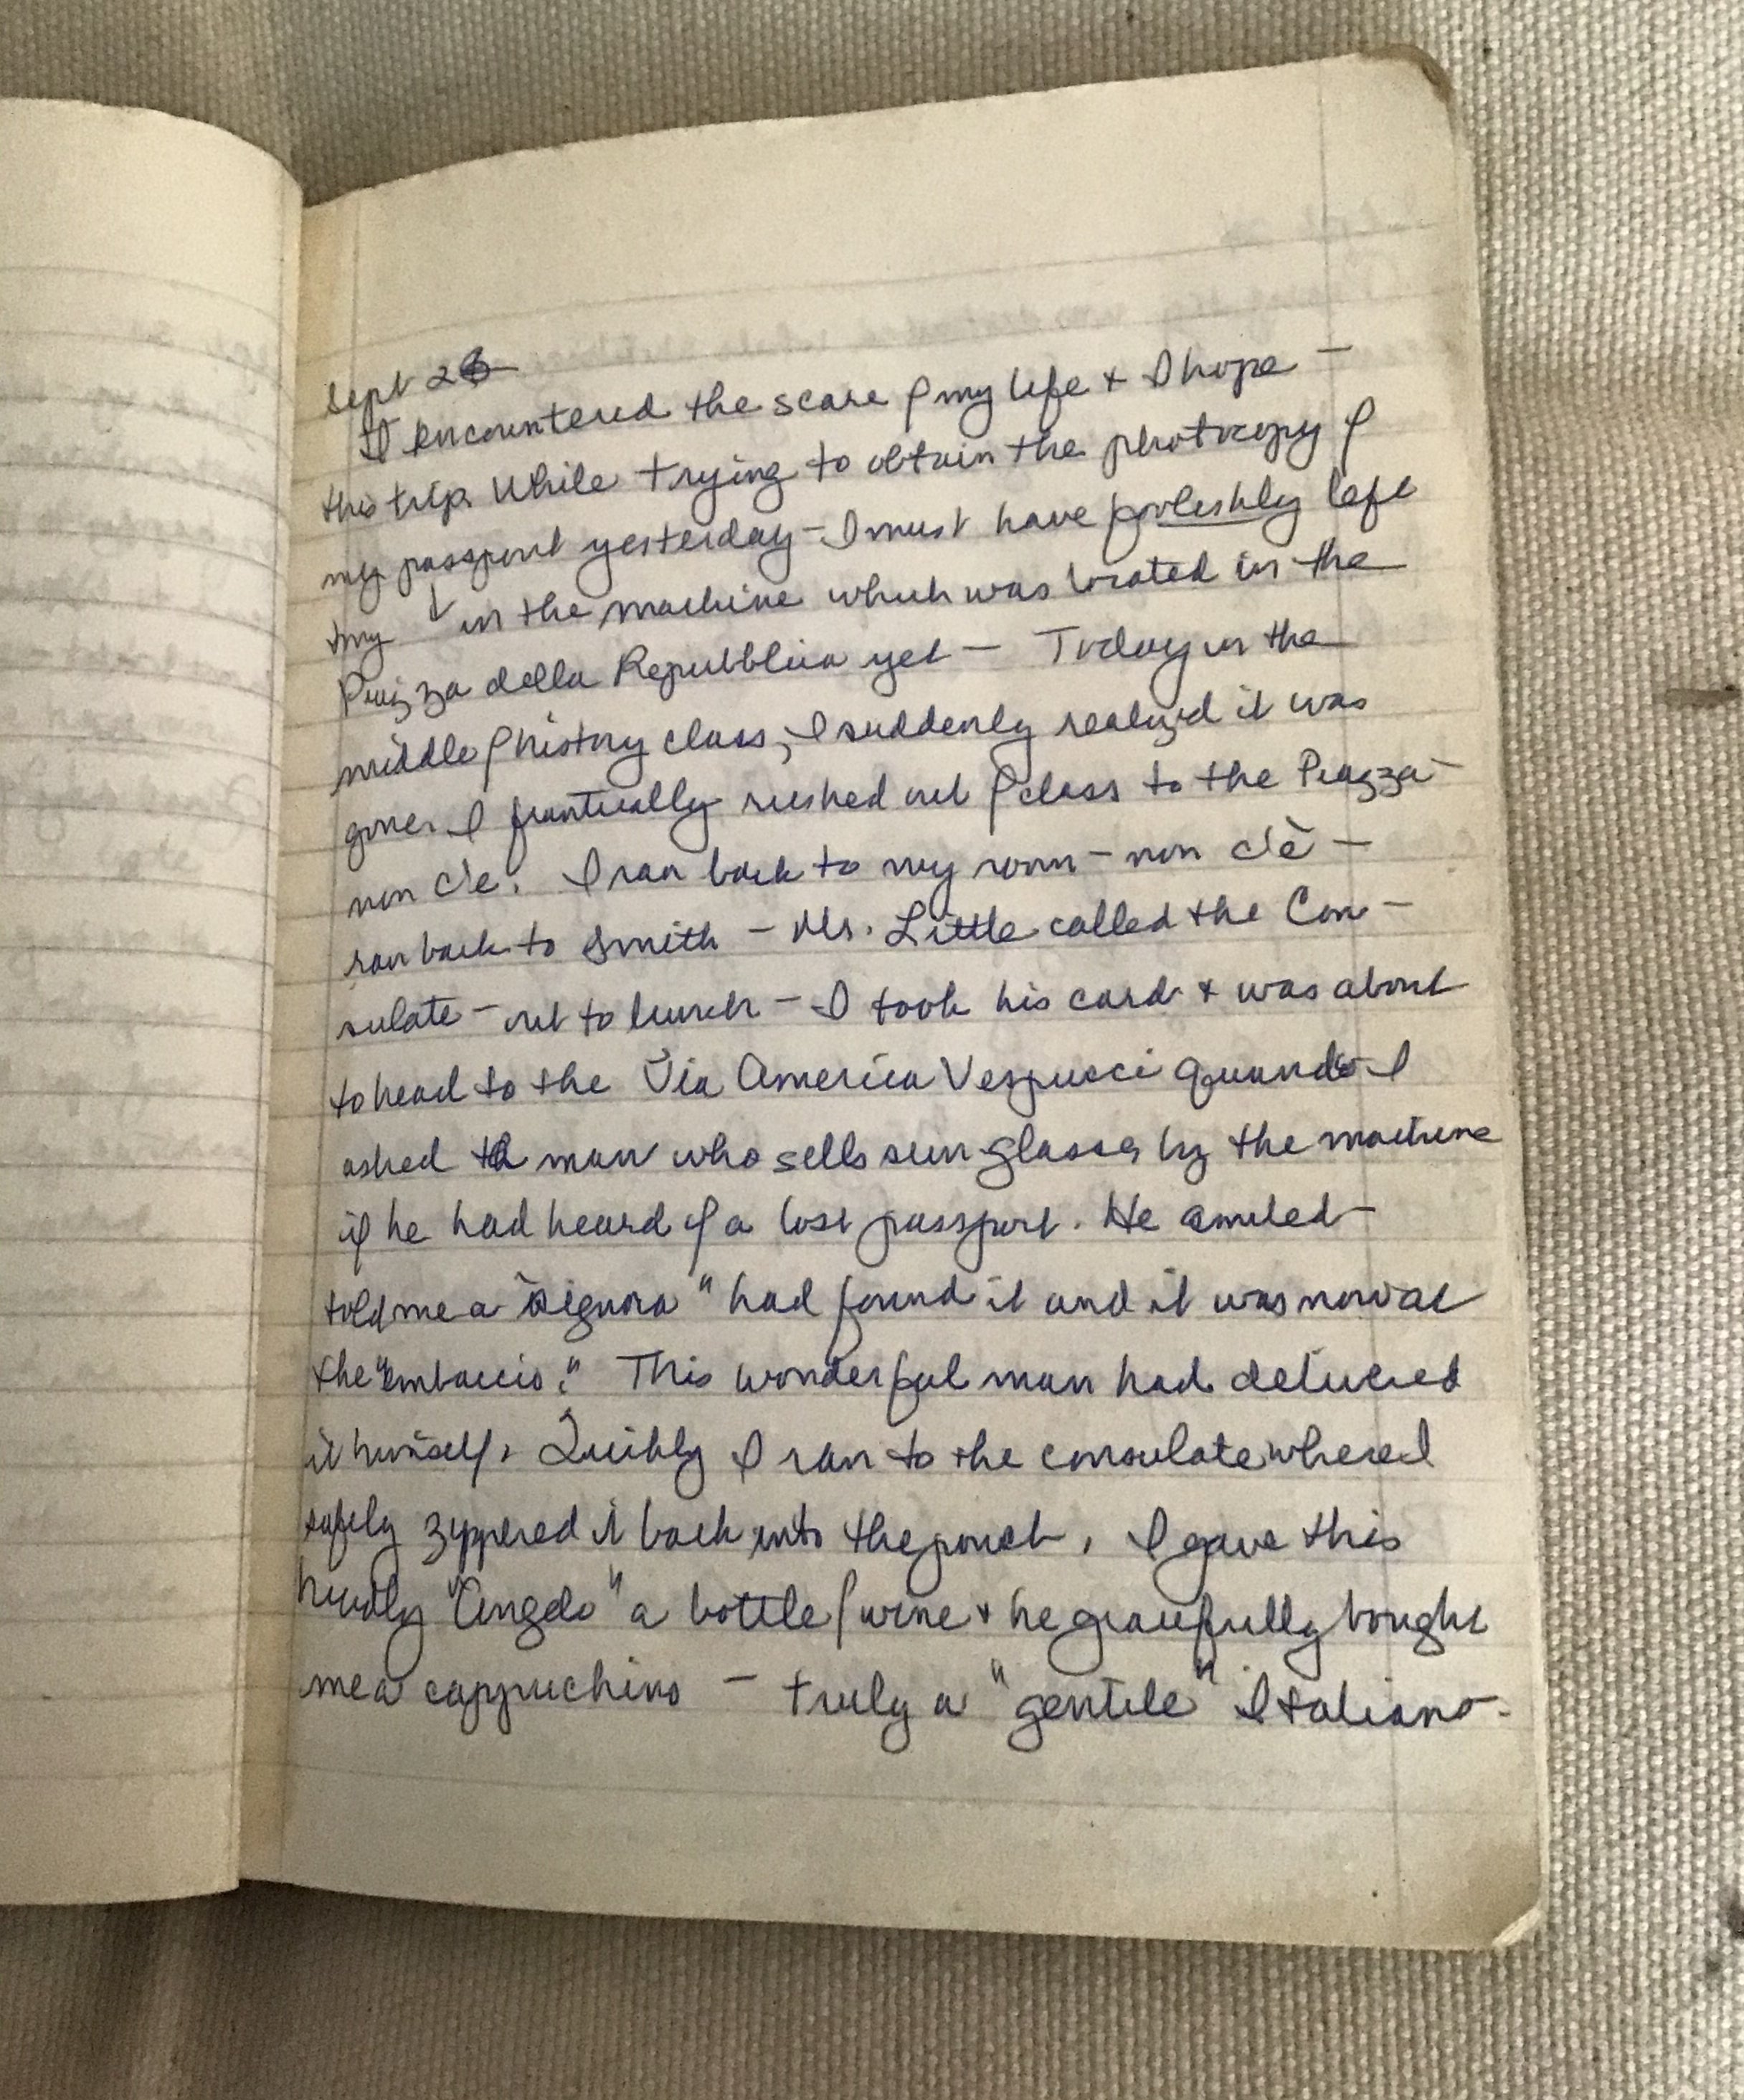 Sept 26
I encountered the scare of my life & I hope –
this trip. While trying to obtain the photocopy of
my passport yesterday – I must have foolishly left
my ↓ in the machine which was located in the
Piazza della Repubblica yet – Today in the
middle of history class, I suddenly realized it was
gone. I frantically rushed out of class to the Piazza –
non c'e. I ran back to my room – non c'è –
ran back to Smith – Mr. Little called the Con-
sulate – out to lunch – I took his card & was about
to head to the Via America Vespucci quando I
asked a man who sells sunglasses by the machine
if he had heard of a lost passport. He smiled –
told me a "signora" had found it and it was now at
the "embaccio." This wonderful man had delivered
it himself. Quickly I ran to the consulate where I
safely zippered it back into the pouch. I gave this
"Angelo" a bottle of wine & he gracefully bought
me a cappuchino – truly a "gentile" Italiano.